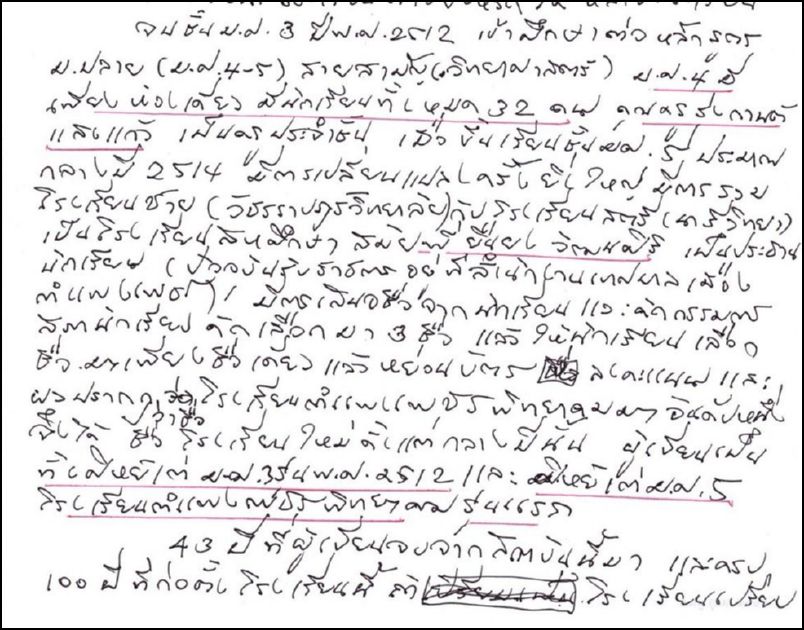 จบชั้น ม.ศ. 3 ปี พ.ศ. 2512 เข้าศึกษาต่อ หลักสูตร
ม.ปลาย (ม.ศ. 4-5) สายสามัญ (วิทยาศาสตร์) ม.ศ. 4 มี
เพียงห้องเดียว มีนักเรียนทั้งหมด 32 คน คุณครู
แสงแก้ว เป็นครูประจำชั้น เมื่อขึ้นเรียนชั้น ม.ศ. 5 ประมาณ
กลางปี 2514 มีการเปลี่ยนแปลงครั้งยิ่งใหญ่ มีการรวม
โรงเรียนชาย (วัชรราษฎรวิทยาลัย) กับโรงเรียนสตรี (นารีวิทยา)
เป็นโรงเรียนสหศึกษา สมัยพี่ เป็นประธาน
นักเรียน (ปัจจุบันรับราชการอยู่ที่สำนักงานเทศบาลเมือง
กำแพงเพชร) มีการเสนอชื่อจากนักเรียน และคณะกรรมการ
สภานักเรียน คัดเลือกมา 3 ชื่อ แล้วให้นักเรียนเลือก
ชื่อ มาเพียงชื่อเดียว แล้วหย่อนบัตร ลงคะแนน และ
ผลปรากฏว่าชื่อ โรงเรียนกำแพงเพชรพิทยาคม มาอันดับหนึ่ง
จึงได้ ชื่อโรงเรียนใหม่ตั้งแต่กลางปีนั้น ผู้เขียนเป็น
ทั้งศิษย์เก่า ม.ศ. 3 รุ่น พ.ศ. 2512 และศิษย์เก่า ม.ศ. 5
โรงเรียนกำแพงเพชรพิทยาคม รุ่นแรก
43 ปี ที่ผู้เขียนจบจากสถาบันนี้มา และครบ
100 ปี ที่ก่อตั้งโรงเรียนนี้ ถ้า โรงเรียนเปรียบ